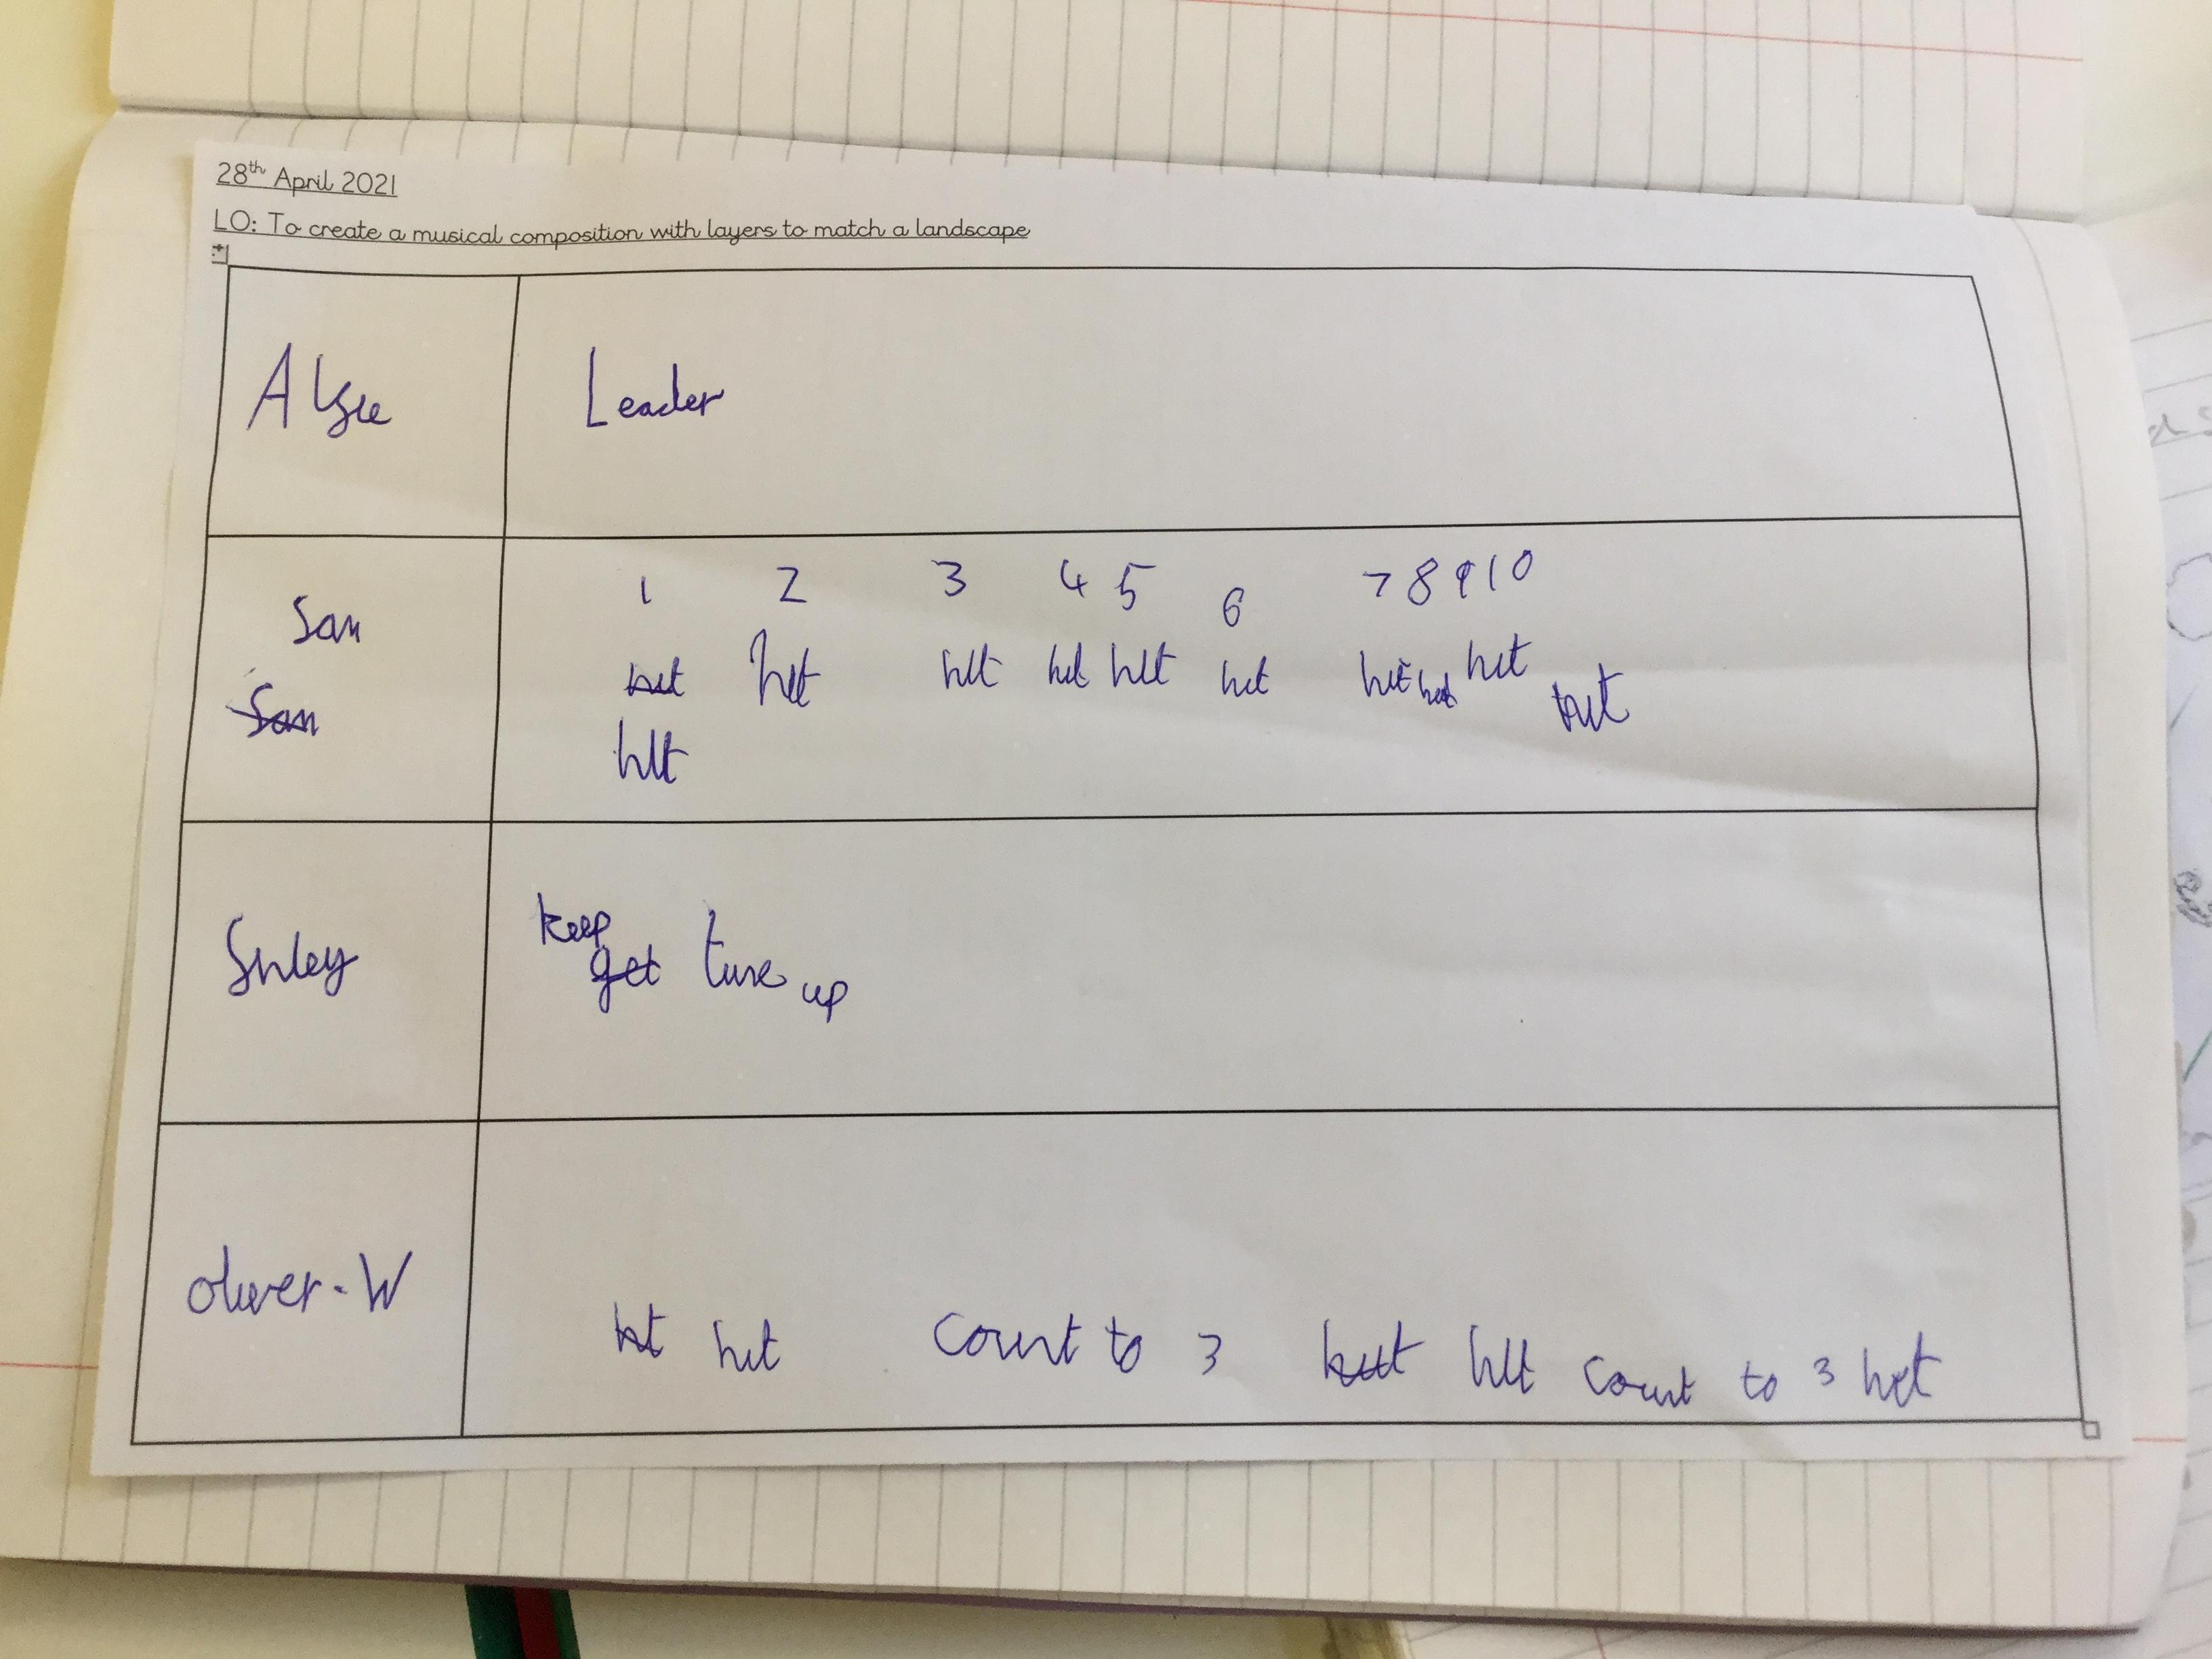 28th April 2021
LO: To create a musical composition with layers to match a landscape
Leader
1 2 3 4 5 6 7 8 9 10
Sam
hit hit hit hit hit hit hit hit hit hit
Sam
hit
keep
get tune up
oliver-W
hit hit count to 3 hit hit count to 3 hit